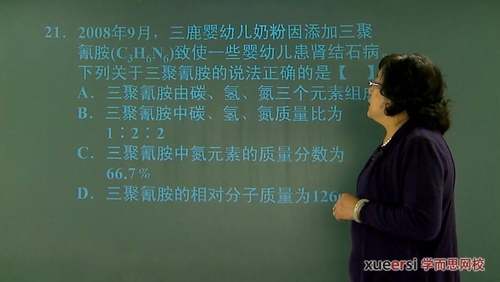 21. 2008年9月，三鹿婴幼儿奶粉因添加三聚
氰胺(C₃H₆N₆)致使一些婴幼儿患肾结石病。
下列关于三聚氰胺的说法正确的是【 】
A. 三聚氰胺由碳、氢、氮三个元素组
B. 三聚氰胺中碳、氢、氮质量比为
1∶2∶2
C. 三聚氰胺中氮元素的质量分数为
66.7%
D. 三聚氰胺的相对分子质量为126
xueersi 学而思网校